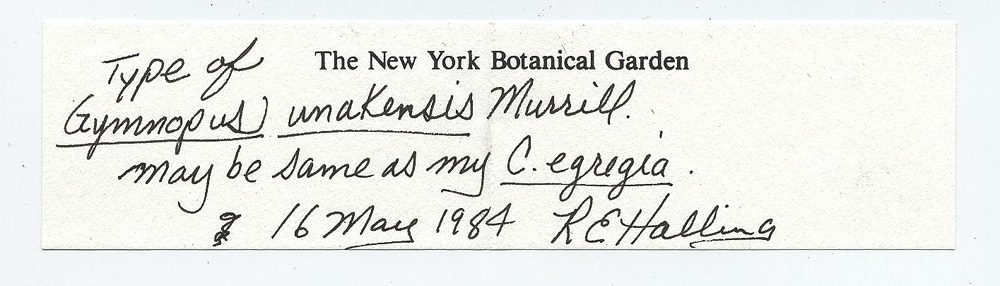 Type of The New York Botanical Garden
Gymnopus unakensis Murrill.
may be same as my C. egregia.
16 May 1984 REHalling